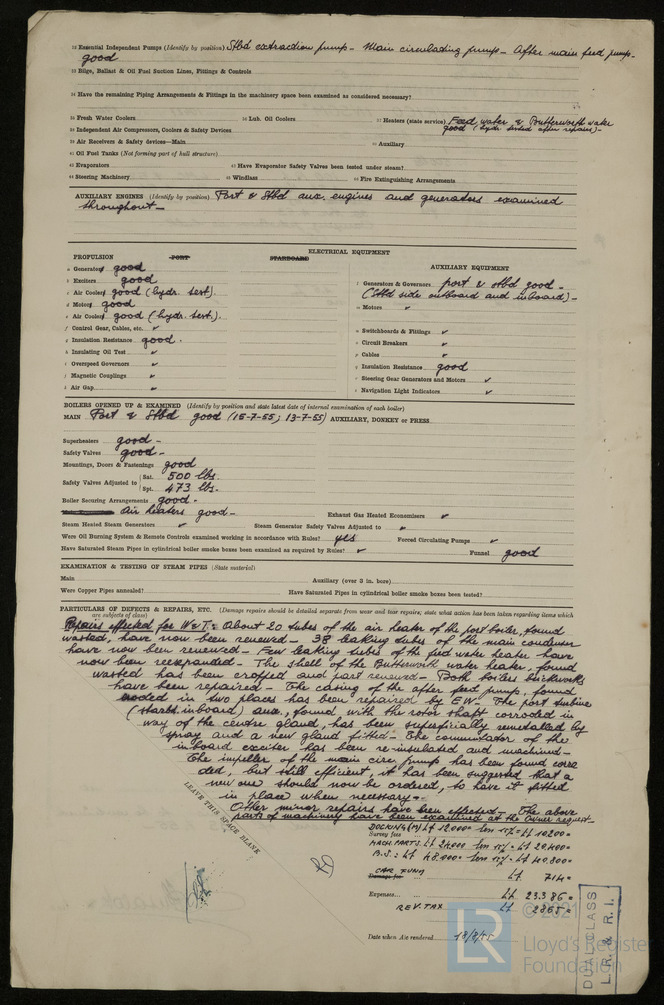 32 Essential Independent Pumps (Identify by position) Stbd extraction pump - Main circulating pump - After main feed pump -
good
33 Bilge, Ballast & Oil Fuel Suction Lines, Fittings & Controls
34 Have the remaining Piping Arrangements & Fittings in the machinery space been examined as considered necessary?
35 Fresh Water Coolers
36 Lub. Oil Coolers
37 Heaters (state service) Feed water & Butterworth water
good (hydr. tested after repairs) -
38 Independent Air Compressors, Coolers & Safety Devices
39 Air Receivers & Safety devices—Main
40 Auxiliary
41 Oil Fuel Tanks (Not forming part of hull structure)
42 Evaporators
43 Have Evaporator Safety Valves been tested under steam?
44 Steering Machinery
45 Windlass
46 Fire Extinguishing Arrangements
AUXILIARY ENGINES (Identify by position) Port & Stbd aux. engines and generators examined
throughout -
ELECTRICAL EQUIPMENT
PROPULSION
PORT
STARBOARD
AUXILIARY EQUIPMENT
a Generators good
b Exciters good
c Air Coolers good (hydr. test).
d Motors good
e Air Coolers good (hydr. test.).
f Control Gear, Cables, etc. ✓
g Insulation Resistance good.
h Insulating Oil Test ✓
i Overspeed Governors ✓
j Magnetic Couplings ✓
k Air Gap ✓
l Generators & Governors port & stbd good -
(Stbd side outboard and inboard) -
m Motors ✓
n Switchboards & Fittings ✓
o Circuit Breakers ✓
p Cables ✓
q Insulation Resistance good
r Steering Gear Generators and Motors ✓
s Navigation Light Indicators ✓
BOILERS OPENED UP & EXAMINED (Identify by position and state latest date of internal examination of each boiler)
MAIN Port & Stbd good (15-7-55; 13-7-55) AUXILIARY, DONKEY or PRESS.
Superheaters good -
Safety Valves good -
Mountings, Doors & Fastenings good
Safety Valves Adjusted to { Sat. 500 lbs.
Spt. 473 lbs.
Boiler Securing Arrangements good -
Air heaters good -
Exhaust Gas Heated Economisers ✓
Steam Heated Steam Generators ✓
Steam Generator Safety Valves Adjusted to ✓
Were Oil Burning System & Remote Controls examined working in accordance with Rules? yes
Forced Circulating Pumps ✓
Have Saturated Steam Pipes in cylindrical boiler smoke boxes been examined as required by Rules? ✓
Funnel good
EXAMINATION & TESTING OF STEAM PIPES (State material)
Main
Auxiliary (over 3 in. bore)
Were Copper Pipes annealed?
Have Saturated Steam Pipes in cylindrical boiler smoke boxes been tested?
PARTICULARS OF DEFECTS & REPAIRS, ETC. (Damage repairs should be detailed separate from wear and tear repairs; state what action has been taken regarding items which
are subjects of class)
Repairs effected for W&T: About 20 tubes of the air heater of the port boiler, found
wasted, have now been renewed - 38 leaking tubes of the main condenser
have now been renewed - Few leaking tubes of the feed water heater have
now been reexpanded - The shell of the Butterworth water heater, found
wasted has been cropped and part renewed - Both boilers brickworks
have been repaired - The casing of the after feed pump, found
eroded in two places has been repaired by EW. The port turbine
(starb. inboard) aux., found with the rotor shaft corroded in
way of the centre gland, has been superficially remetalled by
spray and a new gland fitted - The commutator of the
inboard exciter has been re-insulated and machined -
The impeller of the main circ. pump has been found corro
ded, but still efficient, it has been suggested that a
new one should now be ordered, to have it fitted
in place when necessary -
Other minor repairs have been effected - The above
parts of machinery have been examined at the Owner request -
LEAVE THIS SPACE BLANK
DOCKING Lt 12.000= less 15%= Lt 10.200=
Survey fees
MACH. PARTS. Lt 24.000 less 15%= Lt 20.400=
B.S.: Lt 48.000= less 15%= Lt 40.800=
CAR FUND Lt 714=
Expenses... Lt 23.386=
REV. TAX Lt 2865=
Date when A/c rendered 18/8/55
DUAL CLASS
L.R. & R.I.
© 2021
LR
Lloyd's Register
Foundation